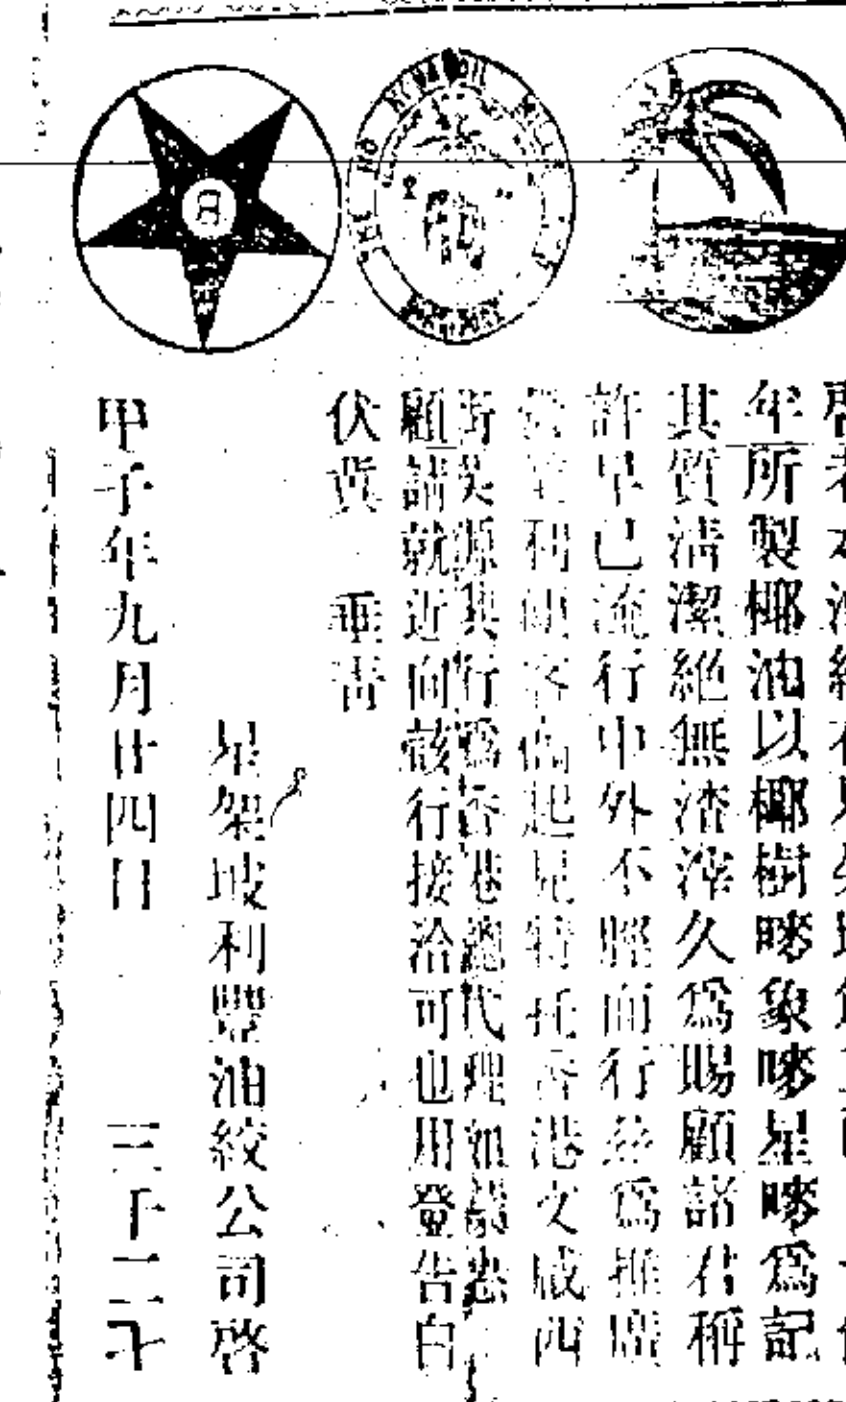 THE HO HONG OIL MILLS
啓者本
年所製椰油以椰樹嘜象嘜星嘜爲記
其質清潔絕無渣滓久爲賜顧諸君稱
許早已流行中外不脛而行茲爲推廣
利便客商起見特托香港文咸西
街吳源興行爲香港總代理如蒙惠
顧請就近向該行接洽可也用登告白
伏冀 垂青
星架坡利豐油絞公司啓
甲子年九月廿四日 三千二